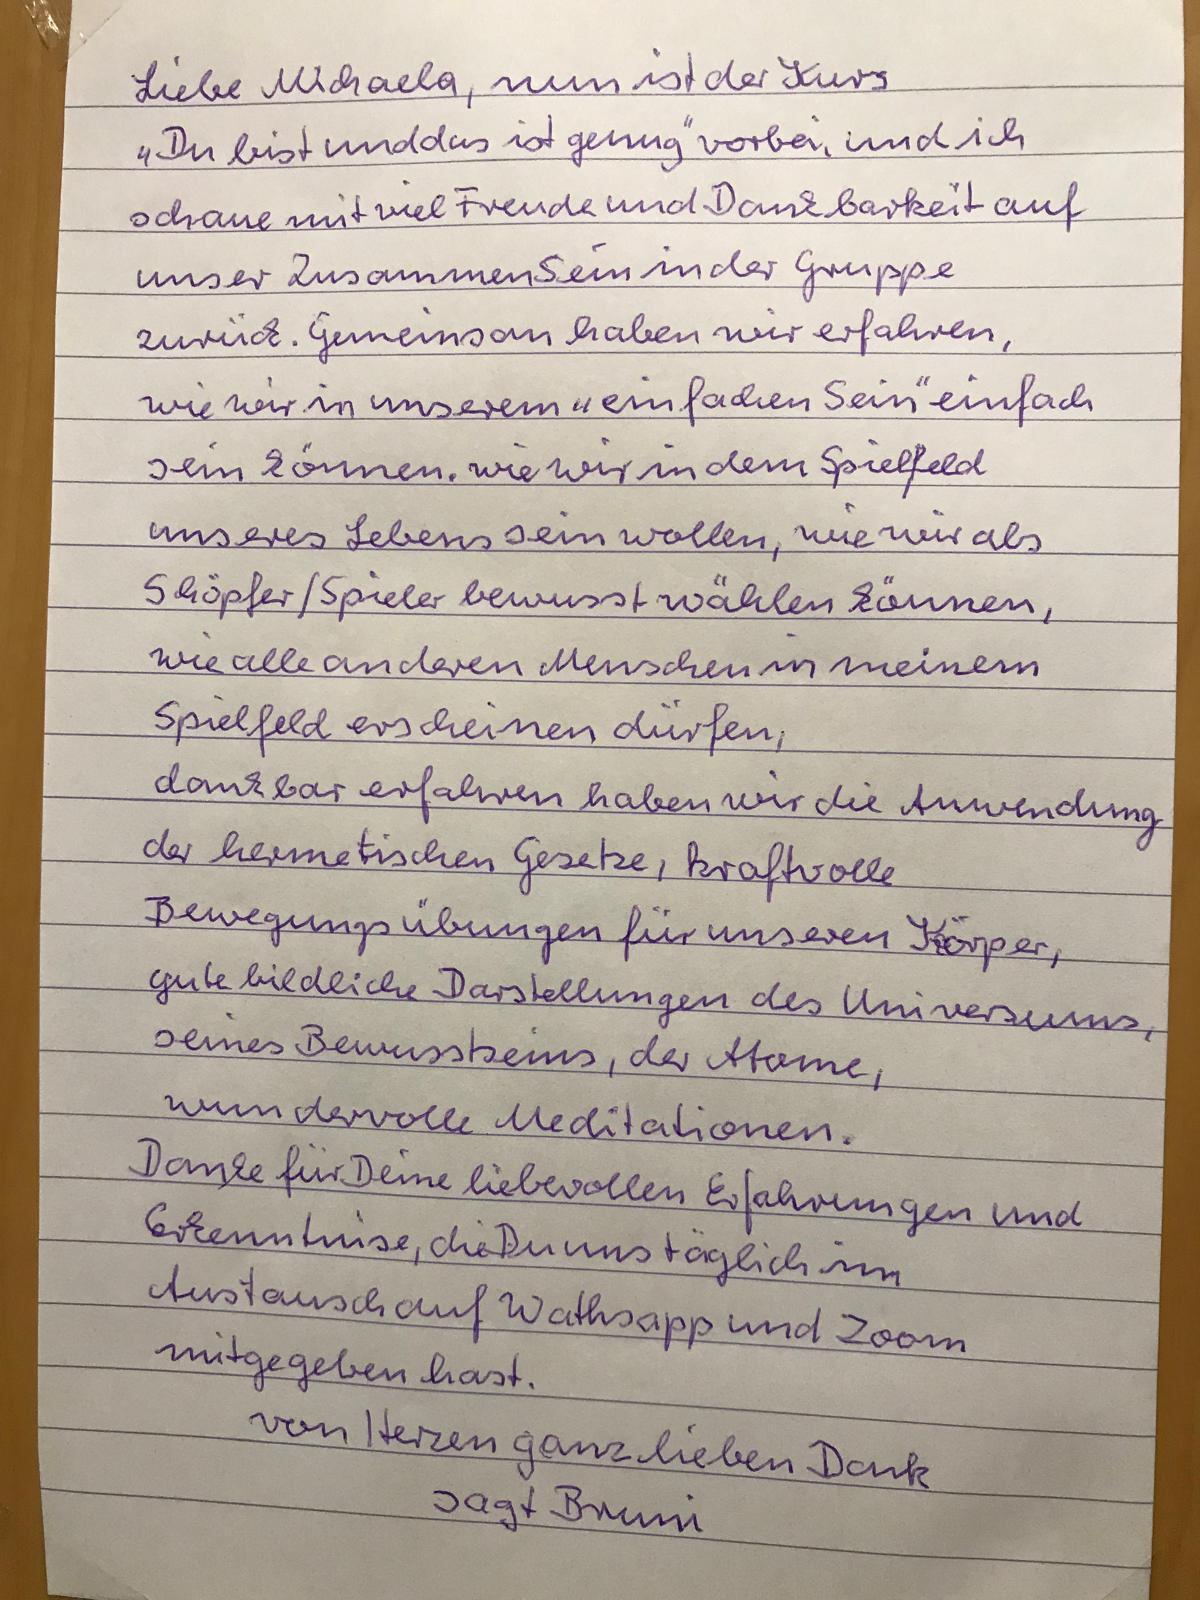 Liebe Michaela, nun ist der Kurs
„Du bist und das ist genug" vorbei, und ich
schaue mit viel Freude und Dankbarkeit auf
unser ZusammenSein in der Gruppe
zurück. Gemeinsam haben wir erfahren,
wie wir in unserem „einfachen Sein" einfach
sein können. wie wir in dem Spielfeld
unseres Lebens sein wollen, wie wir als
Schöpfer/Spieler bewusst wählen können,
wie alle anderen Menschen in meinem
Spielfeld erscheinen dürfen,
dankbar erfahren haben wir die Anwendung
der hermetischen Gesetze, kraftvolle
Bewegungsübungen für unseren Körper,
gute bildliche Darstellungen des Universums,
seines Bewusstseins, der Atome,
wundervolle Meditationen.
Danke für Deine liebevollen Erfahrungen und
Erkenntnise, die Du uns täglich im
Austausch auf Wathsapp und Zoom
mitgegeben hast.
von Herzen ganz lieben Dank
sagt Bruni